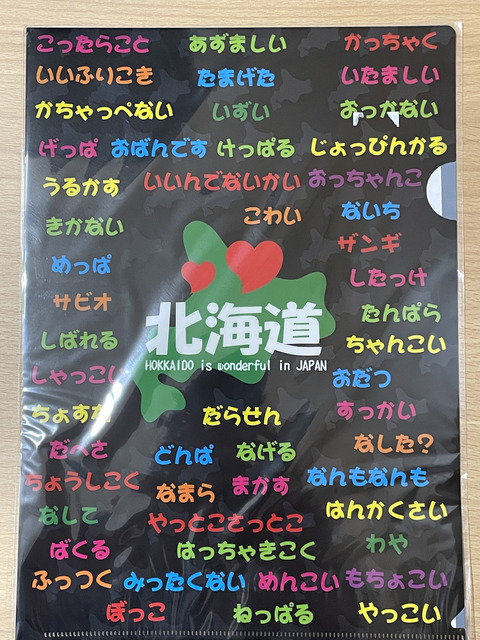 こったらこと あずましい かっちゃく
いいふりこき たまげた いたましい
かちゃっぺない いずい おっかない
げっぱ おばんです けっぱる じょっぴんかる
うるかす いいんでないかい おっちゃんこ
きかない こわい ないち
めっぱ ザンギ
サビオ したっけ
しばれる 北海道 たんぱら
HOKKAIDO is wonderful in JAPAN ちゃんこい
しゃっこい おだつ
ちょすな だらせん すっかい
だべさ どんぱ なげる なした?
ちょうしこく なまら まかす なんもなんも
なして やっとこさっとこ はんかくさい
ばくる はっちゃきこく わや
ふっつく みったくない めんこい もちょこい
ぼっこ ねっぱる やっこい